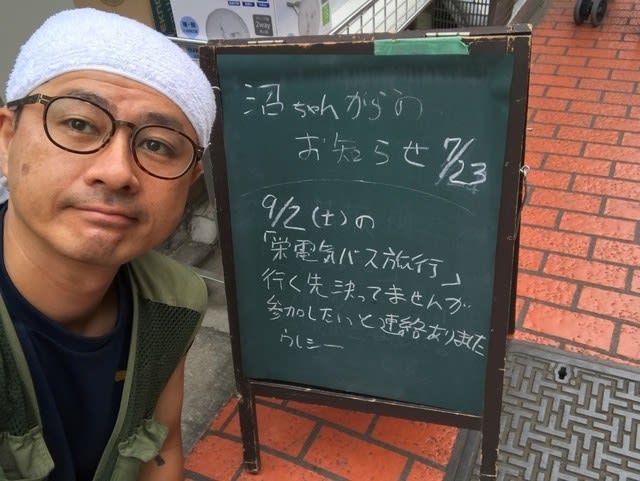 沼ちゃんからの
お知らせ 7/23
9/2(土)の
「栄電気バス旅行」
行く先決ってませんが
参加したいと連絡ありました
ウレシー